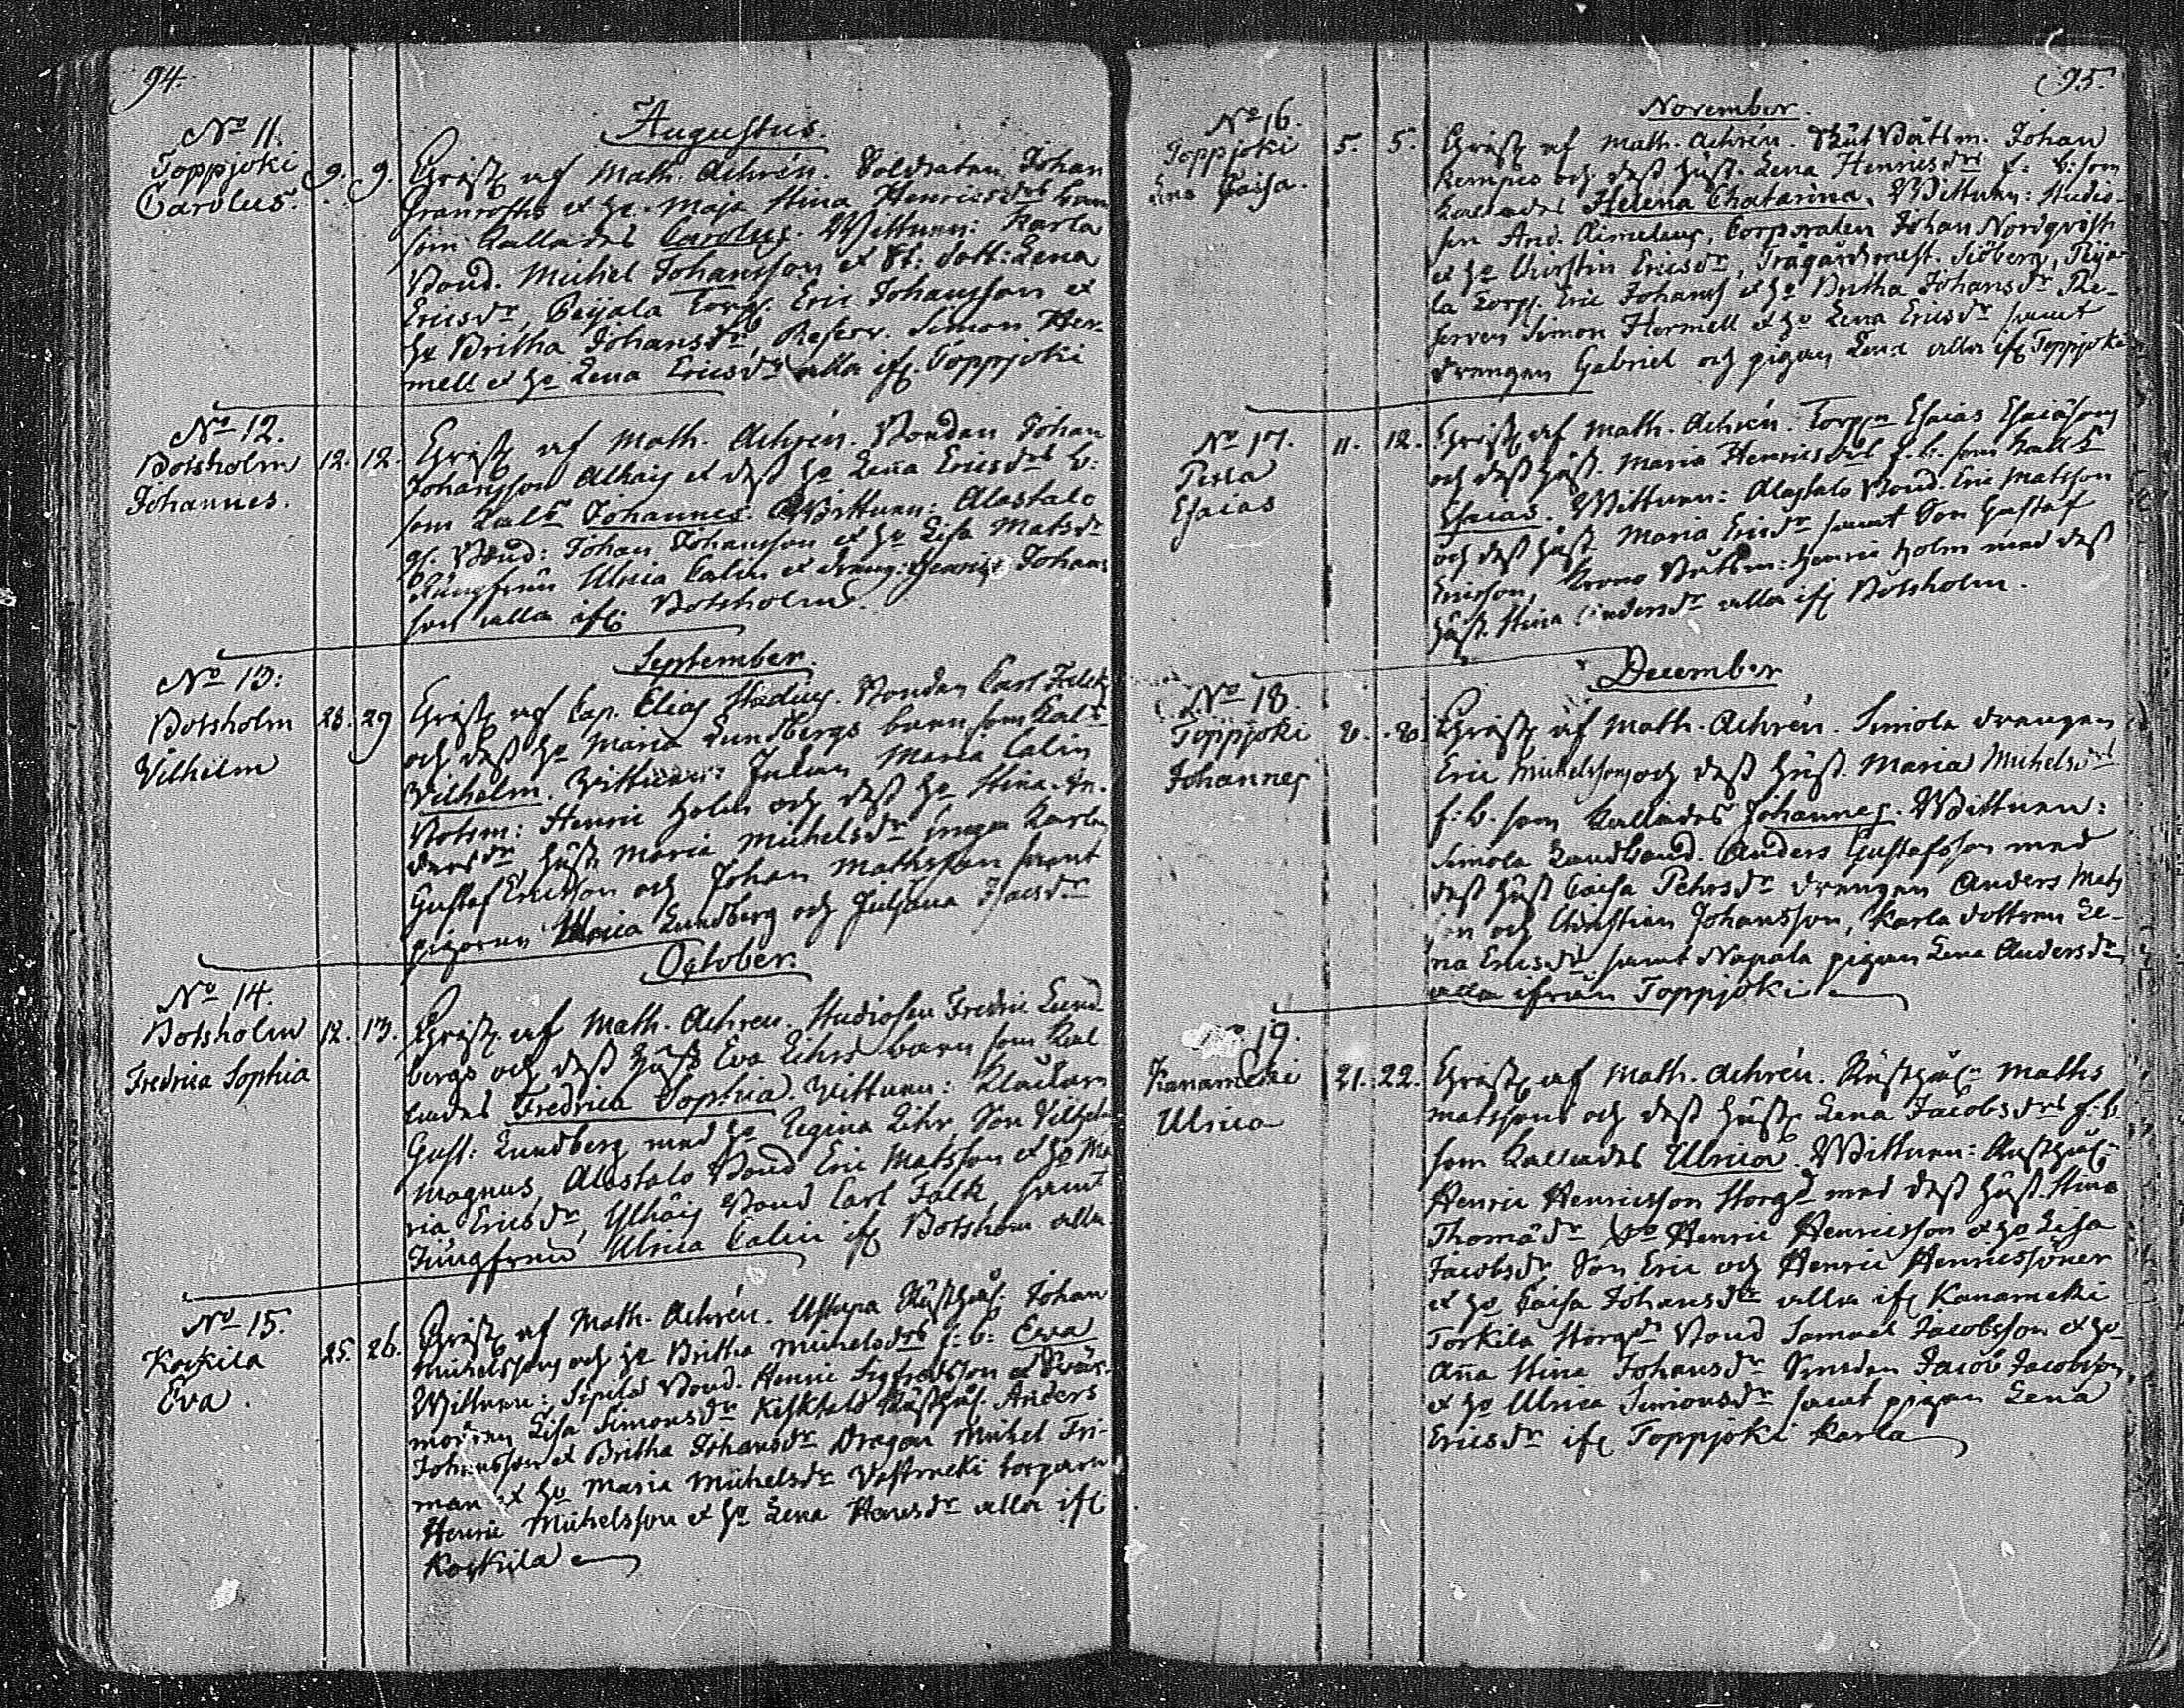 94.
Augustus.
No 11.
Toppjoki
Carolus.
9. 9.
Christ. af Math. Achrén. Soldaten Johan
Granroths et h. Maja Stina Henricsdrs barn
som kallades Carolus. Wittnen: Karla
Bond. Michel Johansson et dott: Lena
Ericsdr, Beijala Torp. Eric Johansson et
hu Britha Johansdr, Reserv. Simon Her-
mell et hu Lena Ericsdr alla ifr. Toppjoki
No 12.
Botsholm
Johannes.
12. 12.
Christ af Math. Achrén. Bonden Johan
Johansson Alhais et dess hu Lena Ericsdrs b:
som kals Johannes. Wittnen: Alastalo
gl. Bond: Johan Johansson et hu Lisa Matsdr
Jungfrun Ulrica Calin et dräng: Henric Johans
son alla ifr. Botsholm.
September.
No 13:
Botsholm
Vilhelm
28. 29
Christ af Cap. Elias Stadius. Bonden Carl Falcks
och dess hu Maria Lundbergs barn som kals
Vilhelm. Vittnen: Maria Calin
Botsm: Henric Holm och dess hu Stina An-
dersdr, hust. Maria Michelsdr unga karlar
Gustaf Ericsson och Johan Mathsson samt
pigorna Ulrica Lundberg och Juliana Isacsdr
October.
No 14.
Botsholm
Fredrica Sophia
12. 13.
Christ. af Math. Achrén. Studiosen Fredric Lund-
bergs och dess hust Eva Lihrs barn som kal
lades Fredrica Sophia. Vittnen: Klockaren
Gust: Lundberg med hu Regina Lihr, Son Vilhelm
Magnus, Alastalo Bond Eric Matsson et hu Ma
ria Ericsdr, Ylhäis Bond Carl Falk, samt
Jungfrun Ulrica Calin ifr Botsholm alla
No 15.
Koskila
Eva.
25. 26.
Christ af Math. Achrén. Ustupa Rusthål. Johan
Michelssons och hu Britha Michelsdrs f: b: Eva
Wittnen: Sipilä Bond. Henric Sigfredsson et Svär-
modren Lisa Simonsdr Keskitalo Rusthål. Anders
Johansson et Britha Johansdr Dragon Michel Fri-
man et hu Maria Michelsdr torparn
Henric Michelsson et hu Lena Hansdr alla ifr
Koskila
95.
November.
No 16.
Toppjoki
Lena Caisa.
5. 5.
Christ af Math. Achrén. Båtsm. Johan
Kempes och dess hust. Lena Henricsdrs f: b: som
kallades Helena Chatarina. Wittnen: Studio-
sen And. Aimelaus, Corporalen Johan Nordqvist
et hu Christin Ericsdr, Trägårdsmest. Siöberg, Pija-
la Torp. Eric Johans et hu Britha Johansdr Re-
serven Simon Hermell et hu Lena Ericsdr samt
drengen Gabriel och pigan Lena alla ifr Toppjoki
No 17.
Esaias
11. 12.
Christ af Math. Achrén. Torpn Esaias Esaiæsons
och dess hust. Maria Henricsdrs f. b. som kalls
Esaias. Wittnen: Alastalo Bond. Eric Matsson
och dess hust Maria Ericsdr samt Son Gustaf
Ericson, Krono Båtsm: Henric Holm med dess
hust. Stina Andersdr alla ifr Botsholm.
December
No 18.
Toppjoki
Johannes
8. 8.
Christ af Math. Achrén. Simola drengen
Eric Michelssons och dess hust. Maria Michelsdrs
f: b. som kallades Johannes. Wittnen:
Simola Landbond. Anders Gustafsson med
dess hust Caisa Pehrsdr drengen Anders Mats
son och Christian Johansson, Karla dottren Le-
na Ericsdr samt Napala pigan Lena Andersdr
alla ifrån Toppjoki
19.
Kanameki
Ulrica
21. 22.
Christ af Math. Achrén. Rusthåln Maths
Matssons och dess hust Lena Jacobsdrs f: b.
som kallades Ulrica. Wittnen: Rusthåln
Henric Henricsson Storgd med dess hust. Stina
Thomædr Henric Henricsson et hu Lisa
Jacobsdr Son Eric och Henric Henricssöner
et hu Caisa Johansdr alla ifr Kanameki
Torkila Storgdn Bond Samuel Jacobsson et hu
Aña Stina Johansdr Smeden Jacob Jacobsson
et hu Ulrica Simonsdr samt pigan Lena
Ericsdr ifr Toppjoki Karla